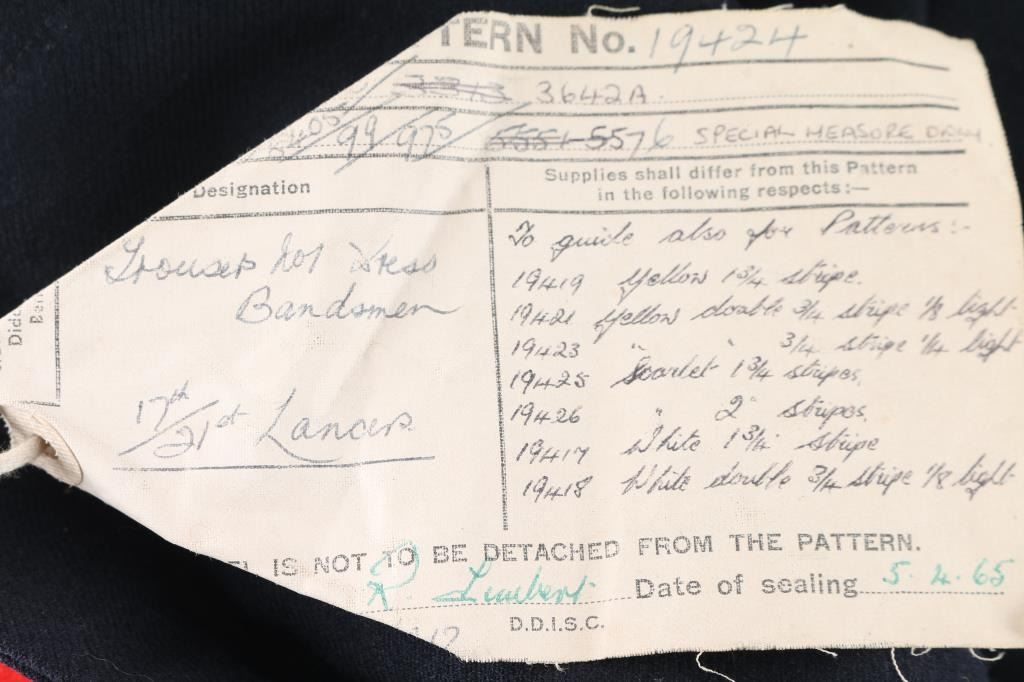 TERN No. 19424
3642A.
99 / 975 5551-5576 SPECIAL MEASURE ONLY
Designation
Supplies shall differ from this Pattern
in the following respects:—
Trousers No1 Dress
Bandsmen
17th/21st Lancers
To guide also for Patterns:-
19419 Yellow 1 3/4 stripe.
19421 Yellow double 3/4 stripe 1/8 light
19423 " " 3/4 stripe 1/4 light
19425 Scarlet 1 3/4 stripes.
19426 " 2" stripes.
19417 White 1 3/4 stripe
19418 White double 3/4 stripe 1/8 light
IS NOT TO BE DETACHED FROM THE PATTERN.
R. Date of sealing 5.4.65
D.D.I.S.C.